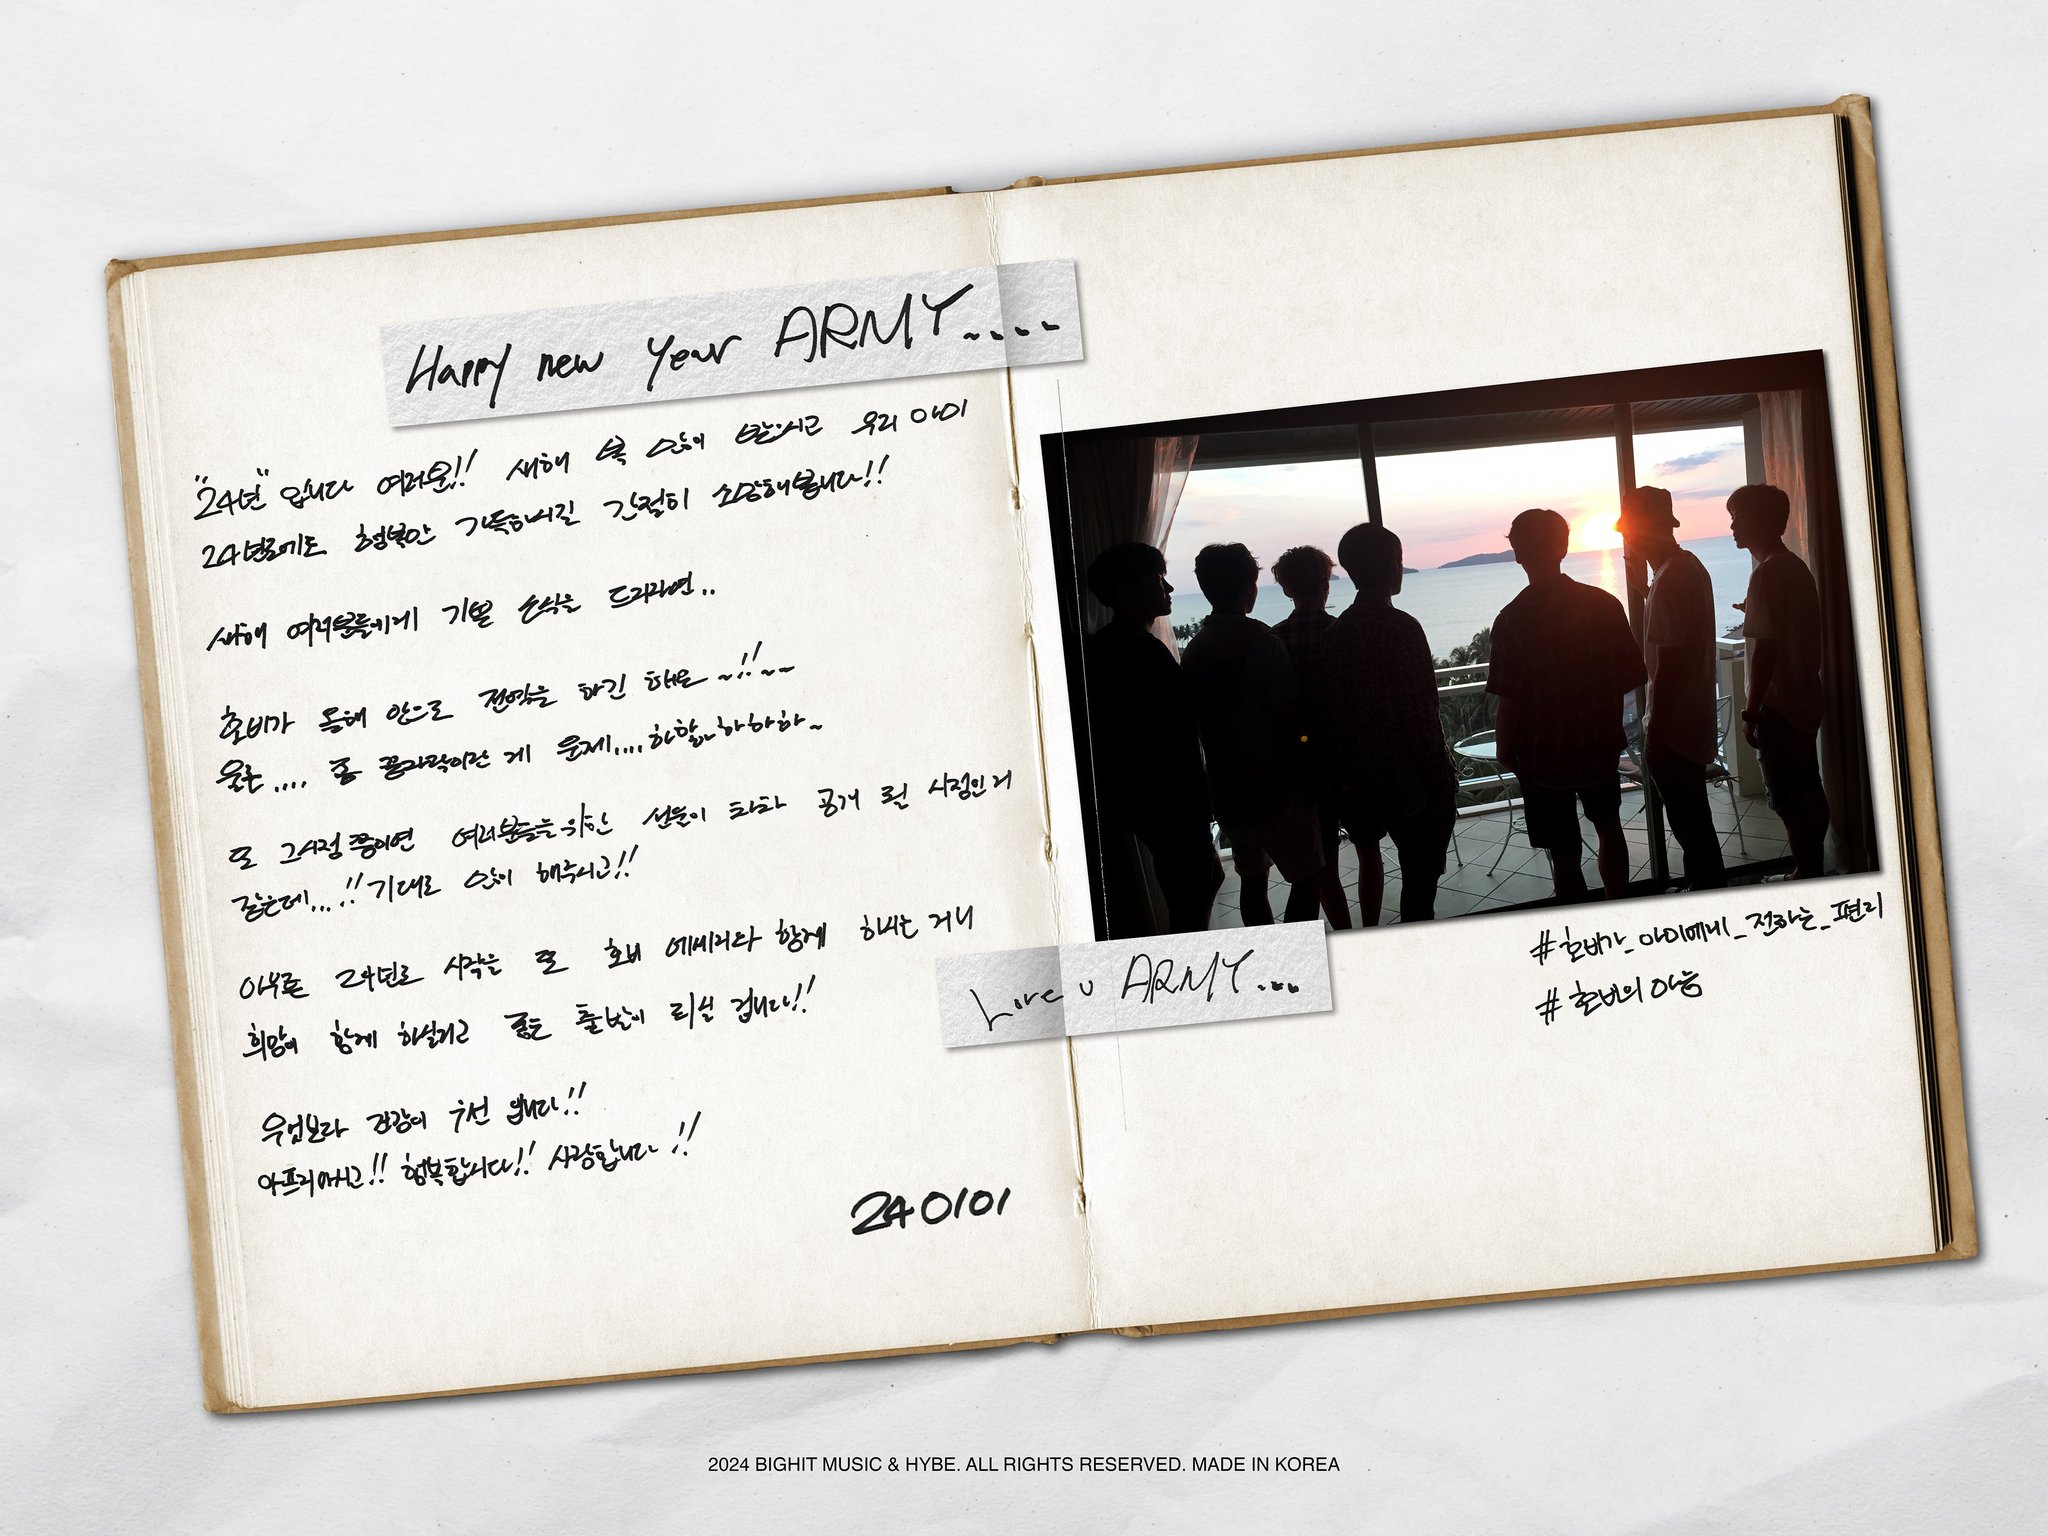 Happy new year ARMY....
"24년" 입니다 여러분!! 새해 복 많이 받으시고 우리 아미
24년도에도 행복만 가득하시길 간절히 소망해봅니다!!
새해 여러분들에게 기쁜 소식을 드리자면..
호비가 올해 안으로 전역을 하긴 해요~!!~~
물론.... 좀 끝자락이란 게 문제....하핳하하하~
또 그 시점 쯤이면 여러분들을 위한 선물이 차차 공개 될 시점인 거
같은데...!! 기대도 많이 해주시고!!
아무튼 24년도 시작을 또 호비 에세이와 함께 하시는 거니
희망이 함께 하실거고 좋은 출발이 되실 겁니다!!
무엇보다 건강이 우선 입니다!!
아프지마시고!! 행복합시다!! 사랑합니다!!
240101
Love u ARMY...
#호비가_아미에게_전하는_편지
#호비의아늠
2024 BIGHIT MUSIC & HYBE. ALL RIGHTS RESERVED. MADE IN KOREA